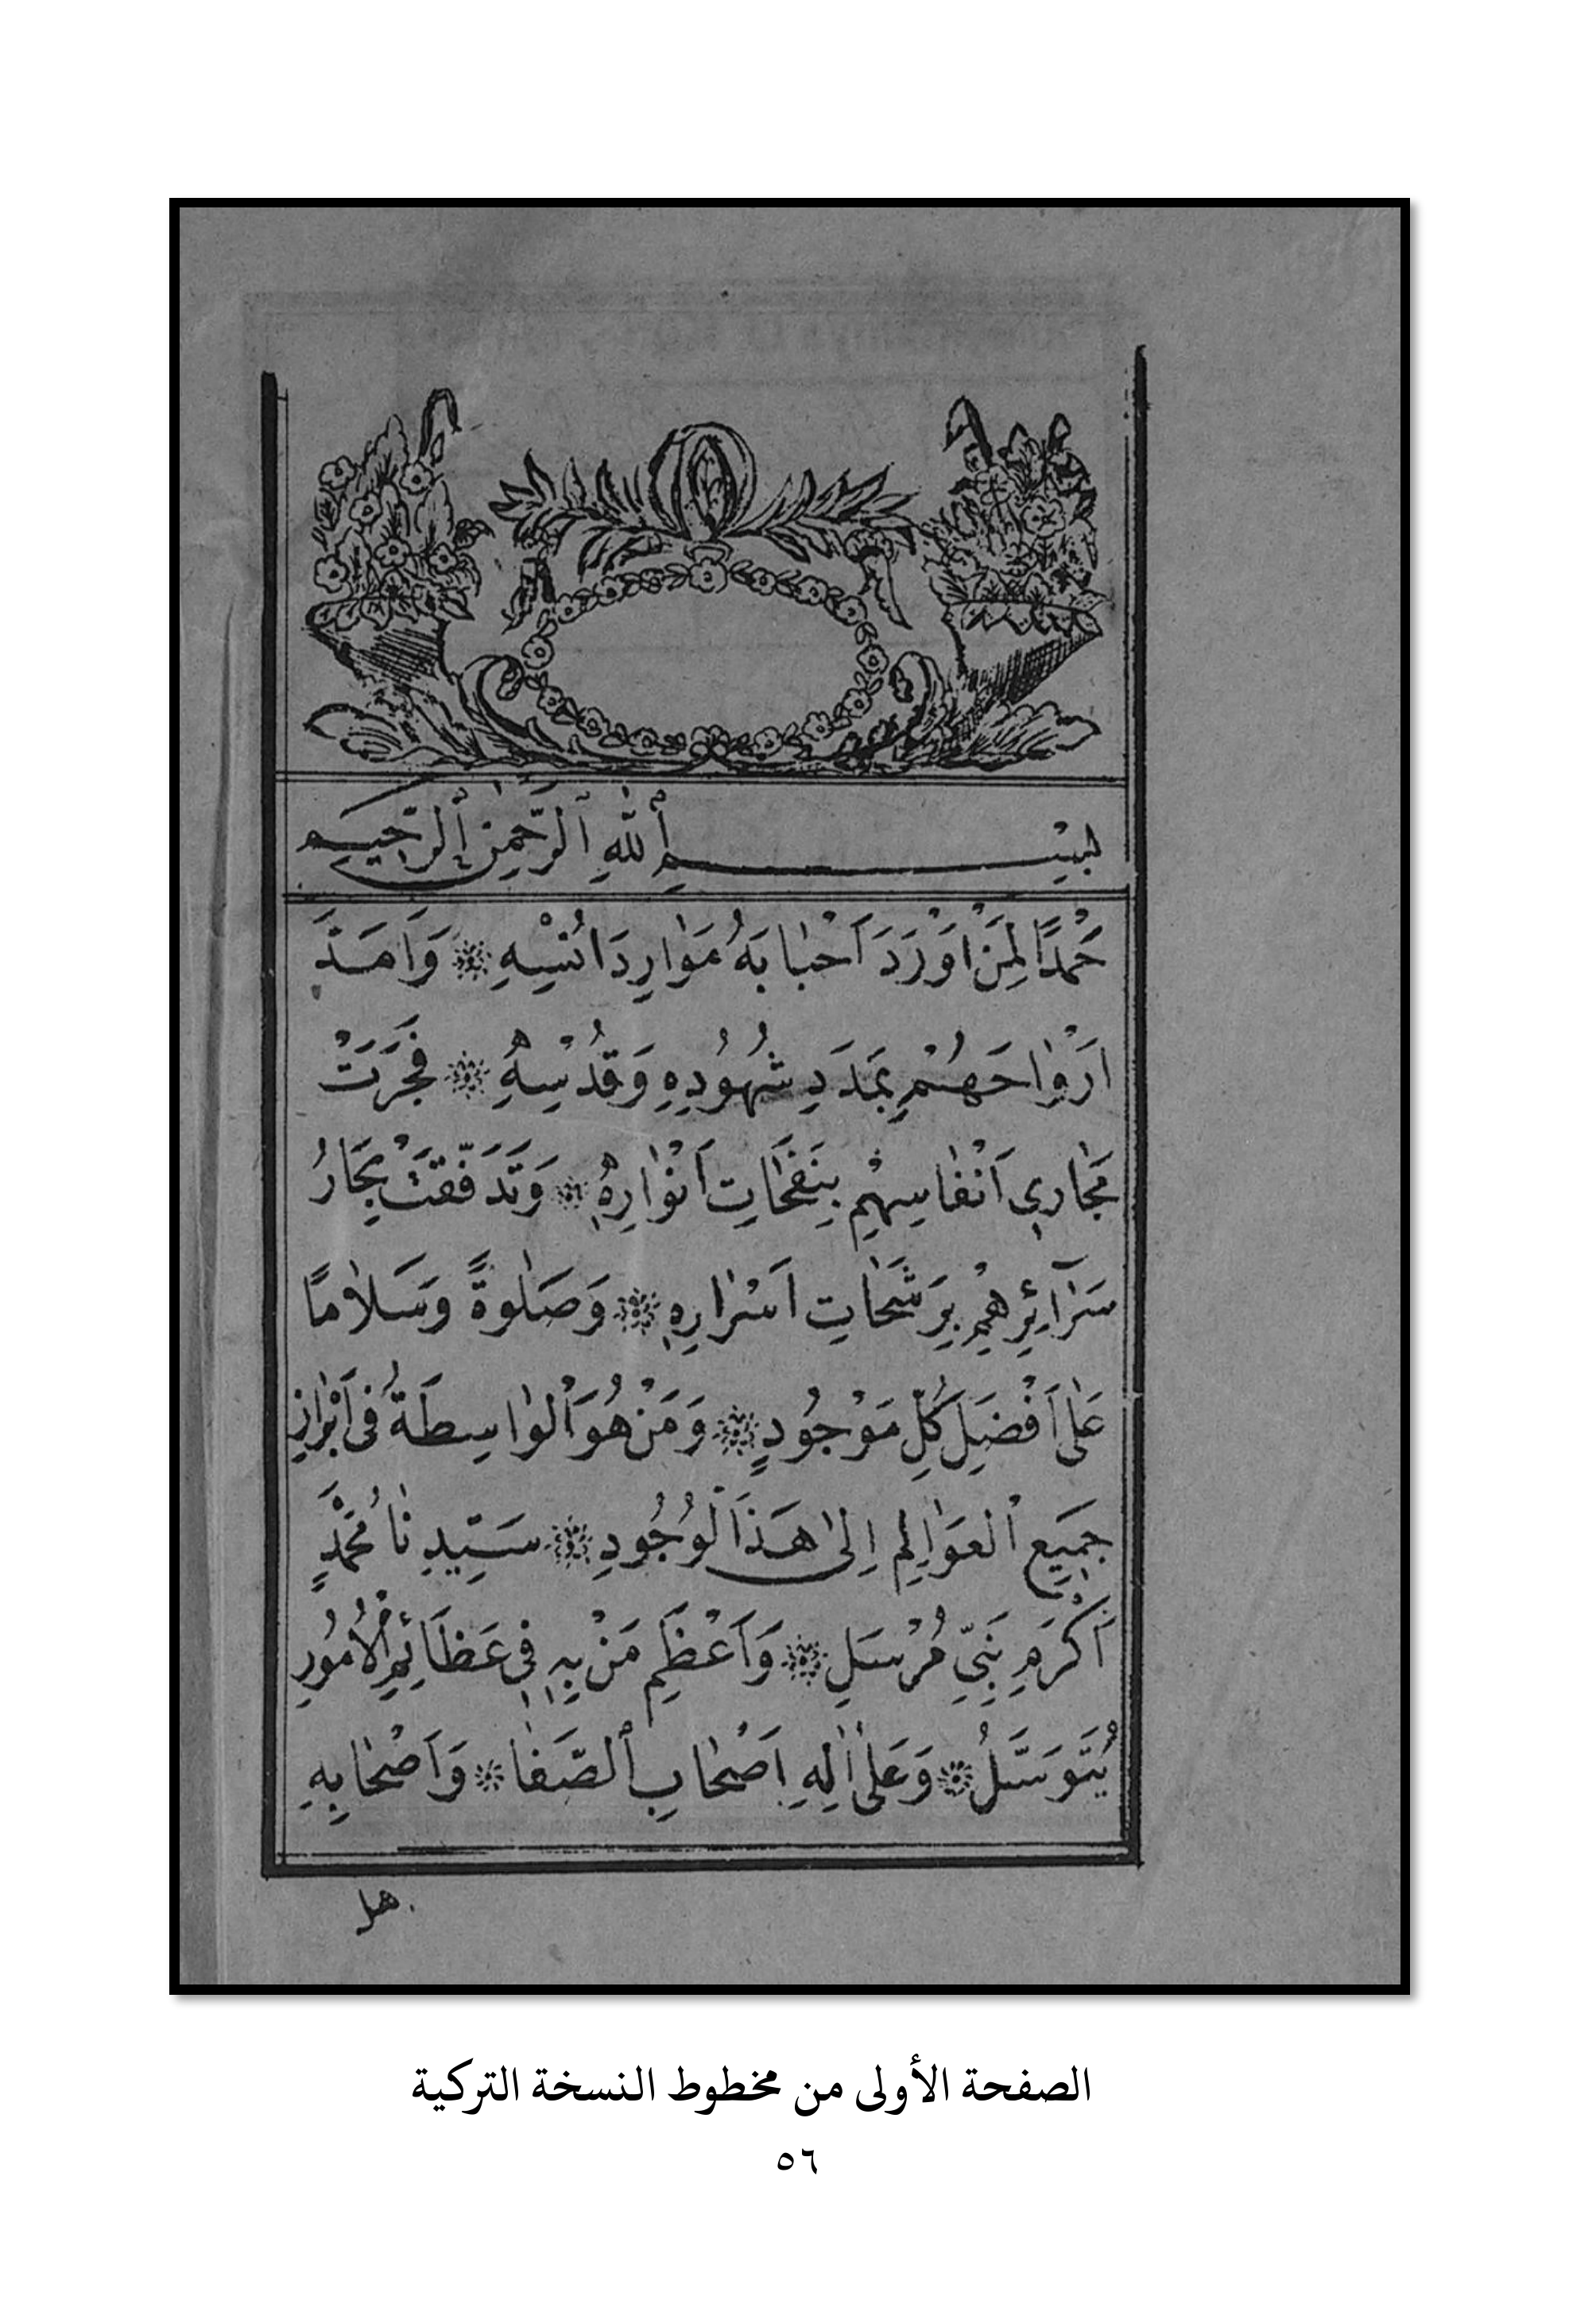 بِسْمِ اللّٰهِ الرَّحْمٰنِ الرَّحِيمِ
حَمْدًا لِمَنْ اَوْرَدَ اَحْبَابَهُ مَوَارِدَ اُنْسِهِ ۞ وَاَمَدَّ
اَرْوَاحَهُمْ بِمَدَدِ شُهُودِهِ وَقُدْسِهِ ۞ فَجَرَتْ
مَجَارِي اَنْفَاسِهِمْ بِنَفَحَاتِ اَنْوَارِهِ ۞ وَتَدَفَّقَتْ بِحَارُ
سَرَآئِرِهِمْ بِرَشَحَاتِ اَسْرَارِهِ ۞ وَصَلٰوةً وَسَلَامًا
عَلٰى اَفْضَلِ كُلِّ مَوْجُودٍ ۞ وَمَنْ هُوَ الْوَاسِطَةُ فِى اَبْرَازِ
جَمِيعِ الْعَوَالِمِ اِلٰى هَذَا الْوُجُودِ ۞ سَيِّدِنَا مُحَمَّدٍ
اَكْرَمِ نَبِىٍّ مُرْسَلٍ ۞ وَاَعْظَمِ مَنْ بِهِ فِى عَظَائِمِ الْاُمُورِ
يُتَوَسَّلُ ۞ وَعَلٰى اٰلِهِ اَصْحَابِ الصَّفَا ۞ وَاَصْحَابِهِ
الصفحة الأولى من مخطوط النسخة التركية
٥٦